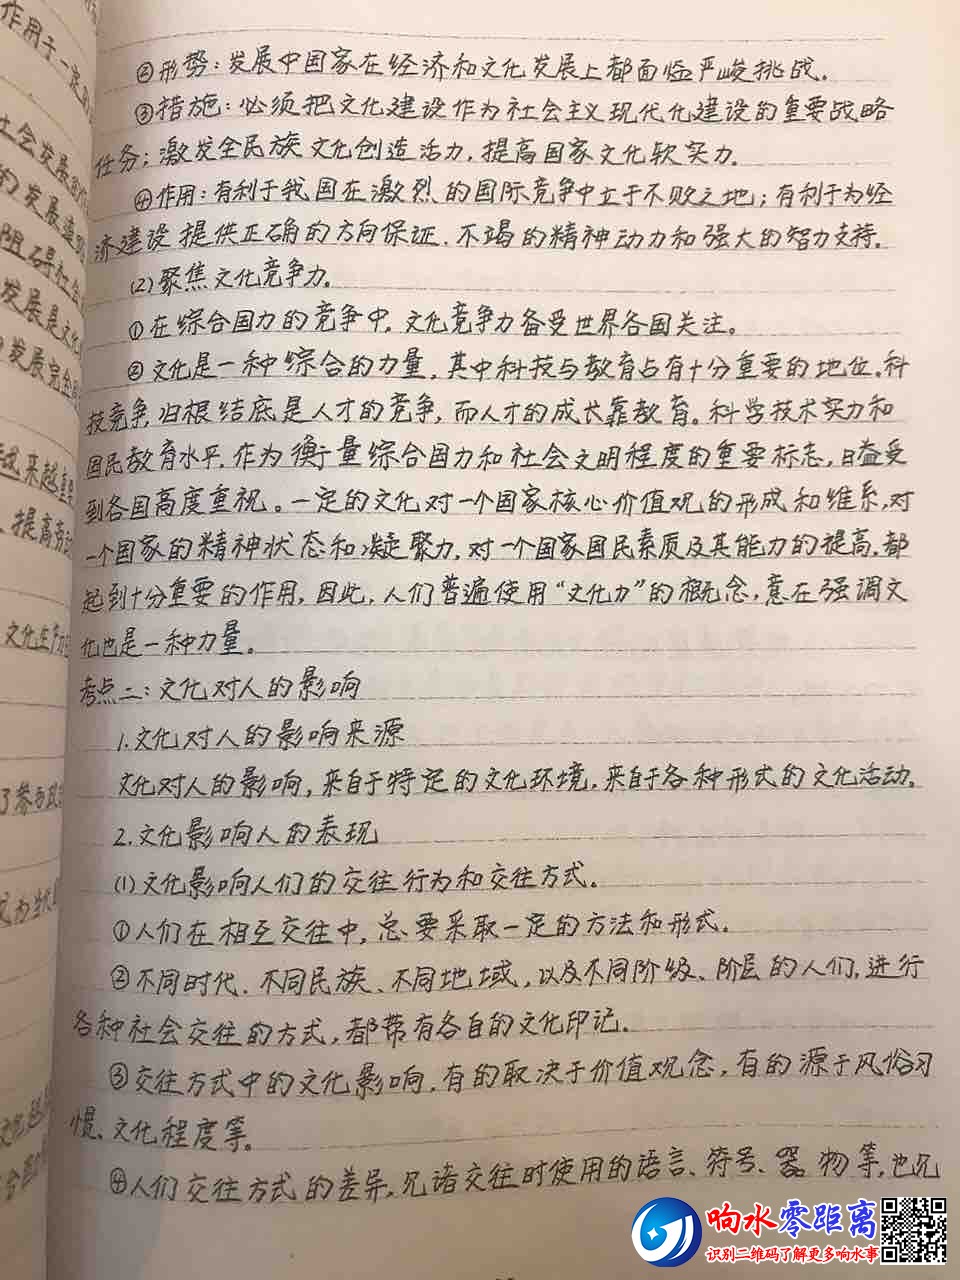 ②形势：发展中国家在经济和文化发展上都面临严峻挑战。
③措施：必须把文化建设作为社会主义现代化建设的重要战略
任务；激发全民族文化创造活力，提高国家文化软实力。
④作用：有利于我国在激烈的国际竞争中立于不败之地；有利于为经
济建设提供正确的方向保证、不竭的精神动力和强大的智力支持。
(2)聚焦文化竞争力。
①在综合国力的竞争中，文化竞争力备受世界各国关注。
②文化是一种综合的力量，其中科技与教育占有十分重要的地位。科
技竞争，归根结底是人才的竞争，而人才的成长靠教育。科学技术实力和
国民教育水平，作为衡量综合国力和社会文明程度的重要标志，日益受
到各国高度重视。一定的文化对一个国家核心价值观的形成和维系，对
一个国家的精神状态和凝聚力，对一个国家国民素质及其能力的提高，都
起到十分重要的作用，因此，人们普遍使用“文化力”的概念，意在强调文
化也是一种力量。
考点二：文化对人的影响
1.文化对人的影响来源
文化对人的影响，来自于特定的文化环境，来自于各种形式的文化活动。
2.文化影响人的表现
(1)文化影响人们的交往行为和交往方式。
①人们在相互交往中，总要采取一定的方法和形式。
②不同时代、不同民族、不同地域，以及不同阶级、阶层的人们，进行
各种社会交往的方式，都带有各自的文化印记。
③交往方式中的文化影响，有的取决于价值观念，有的源于风俗习
惯、文化程度等。
④人们交往方式的差异，见诸交往时使用的语言、符号、器物等，也见
响水零距离
识别二维码了解更多响水事
作用于一定的
社会发展的
的发展
阻碍社会
发展是文化
发展完全
来越重
提高劳动
文化生产力
了参与政治
文为当代